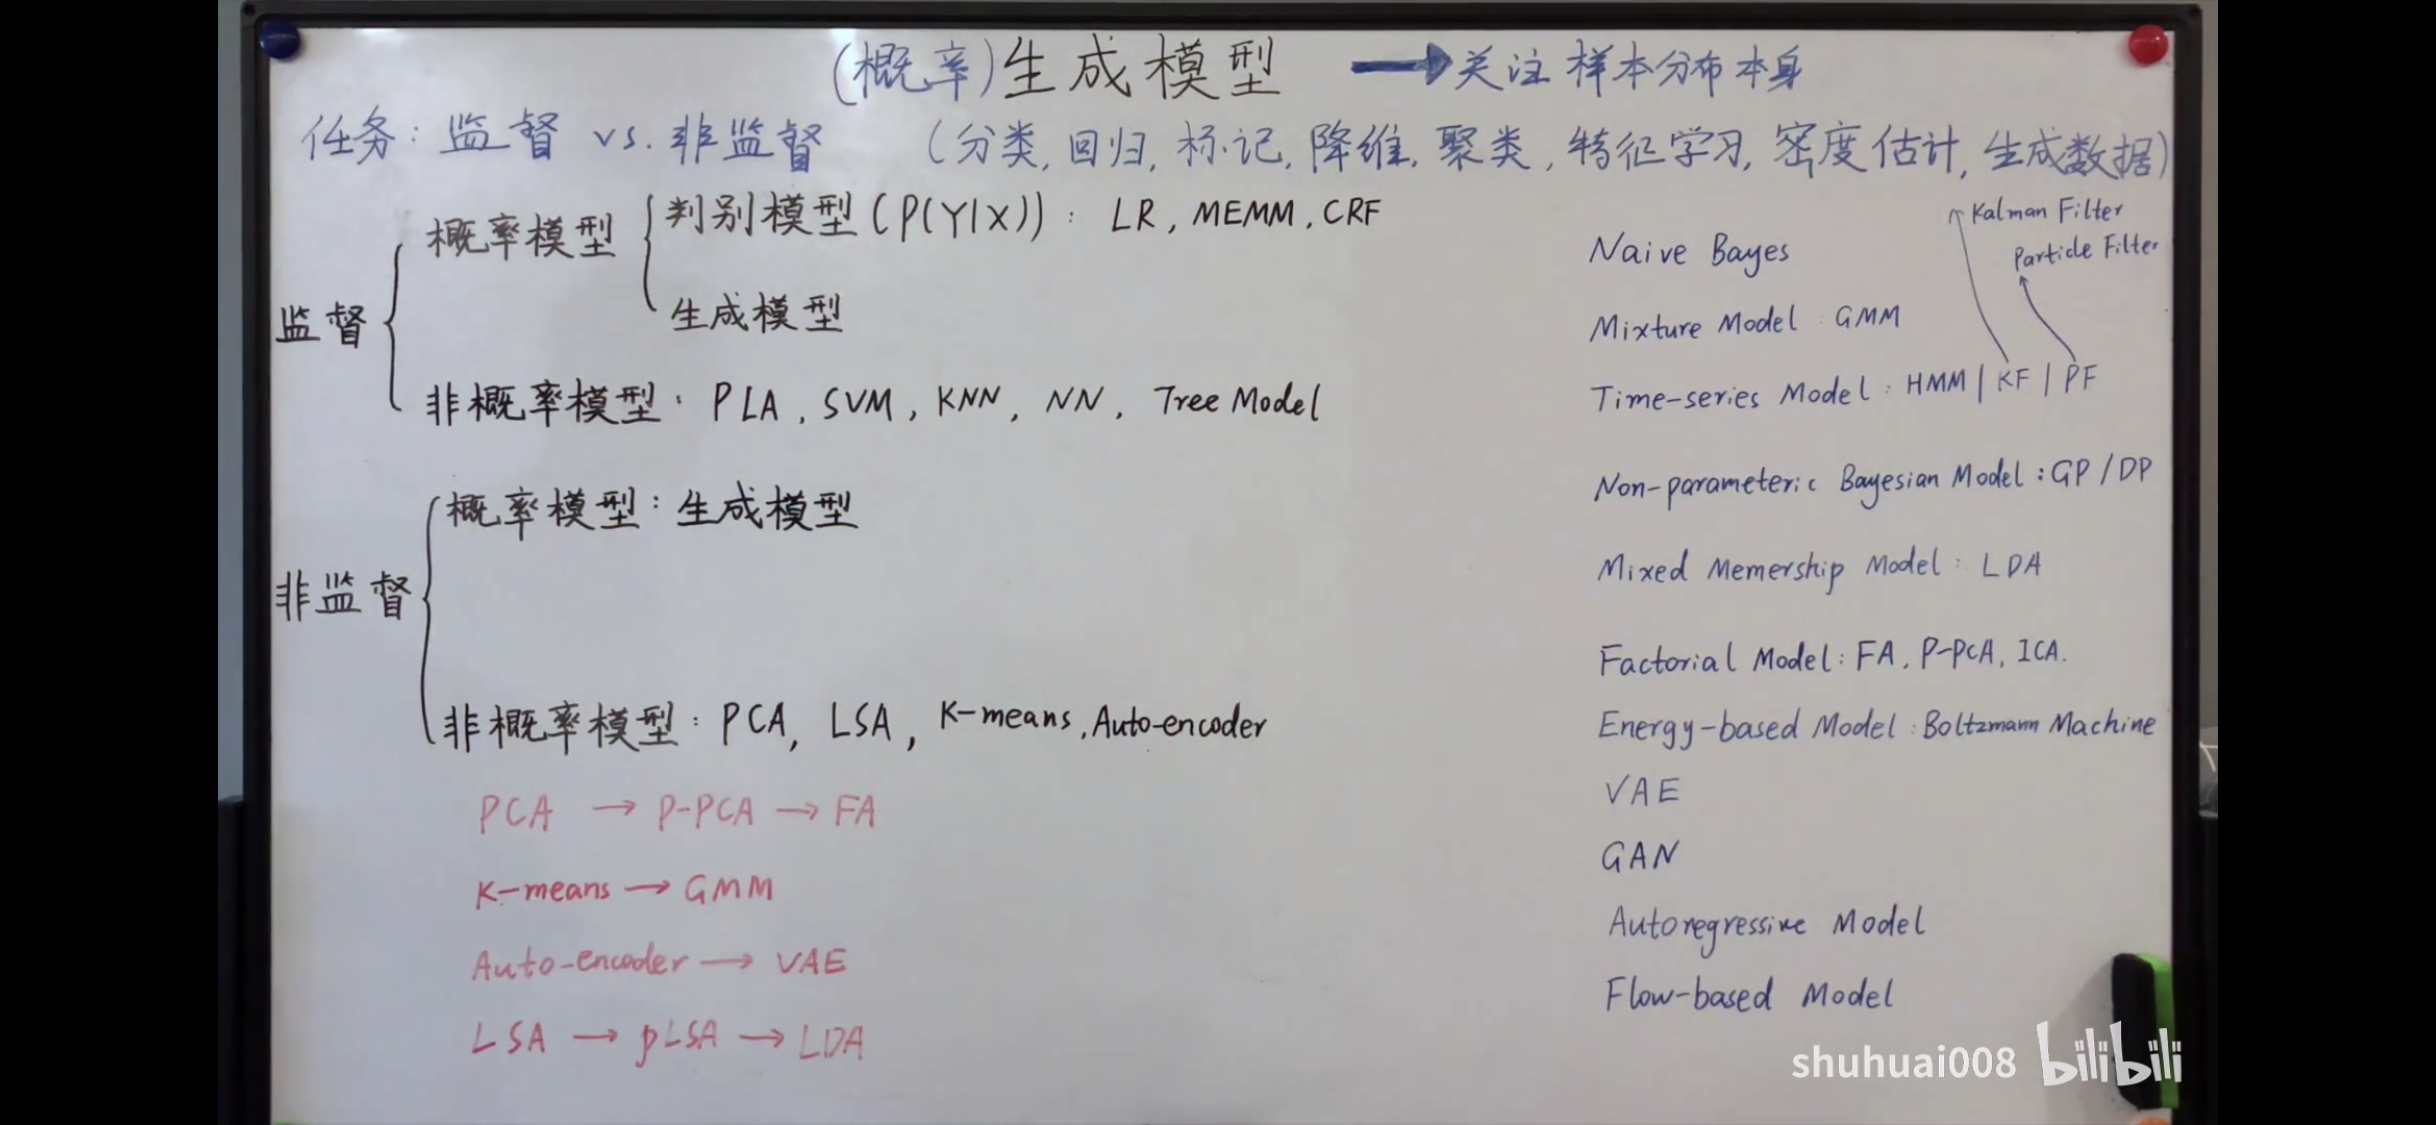 (概率)生成模型 → 关注样本分布本身
任务: 监督 vs. 非监督 (分类, 回归, 标记, 降维, 聚类, 特征学习, 密度估计, 生成数据)
监督
概率模型
判别模型 (P(Y|X)): LR, MEMM, CRF
生成模型
非概率模型: PLA, SVM, KNN, NN, Tree Model
非监督
概率模型: 生成模型
非概率模型: PCA, LSA, K-means, Auto-encoder
PCA → P-PCA → FA
K-means → GMM
Auto-encoder → VAE
LSA → pLSA → LDA
Kalman Filter
Particle Filter
Naive Bayes
Mixture Model: GMM
Time-series Model: HMM | KF | PF
Non-parameteric Bayesian Model: GP / DP
Mixed Memership Model: LDA
Factorial Model: FA, P-PCA, ICA.
Energy-based Model: Boltzmann Machine
VAE
GAN
Autoregressive Model
Flow-based Model
shuhuai008 bilibili